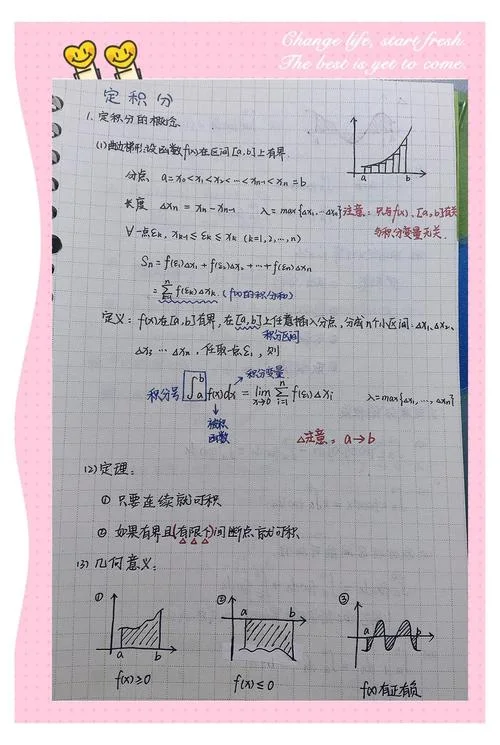 Change life, start fresh.
The best is yet to come.
定积分
1. 定积分的概念
(1) 曲边梯形: 设函数f(x)在区间[a,b]上有界.
分点 a=x₀<x₁<x₂<…<xₙ₋₁<xₙ=b
长度 Δxₙ = xₙ - xₙ₋₁ λ=max{Δx₁,…Δxₙ} 注意: 只与f(x)、[a,b]有关
与积分变量无关.
∀一点ξₖ, xₖ₋₁≤ξₖ≤xₖ (k=1,2,…,n)
Sₙ=f(ξ₁)Δx₁+f(ξ₂)Δx₂+…+f(ξₙ)Δxₙ
=∑ⁿₖ₌₁ f(ξₖ)Δxₖ. (f(x)的积分和)
定义: f(x)在[a,b]有界, 在[a,b]上任意插入分点, 分成n个小区间. Δx₁、Δx₂、
积分区间
Δx₃…Δxₙ, 任取一点ξᵢ, 则
积分变量
积分号 ∫ᵇₐ f(x)dx = lim x→0 ∑ⁿᵢ₌₁ f(ξᵢ)Δxᵢ λ=max{Δx₁,…,Δxₙ}
被积
函数
△注意: a→b
(2) 定理:
① 只要连续就可积
② 如果有界且(有限个)间断点就可积
(3) 几何意义:
① ② ③
a b
a b
a b
f(x)≥0
f(x)≤0
f(x)有正有负
a b